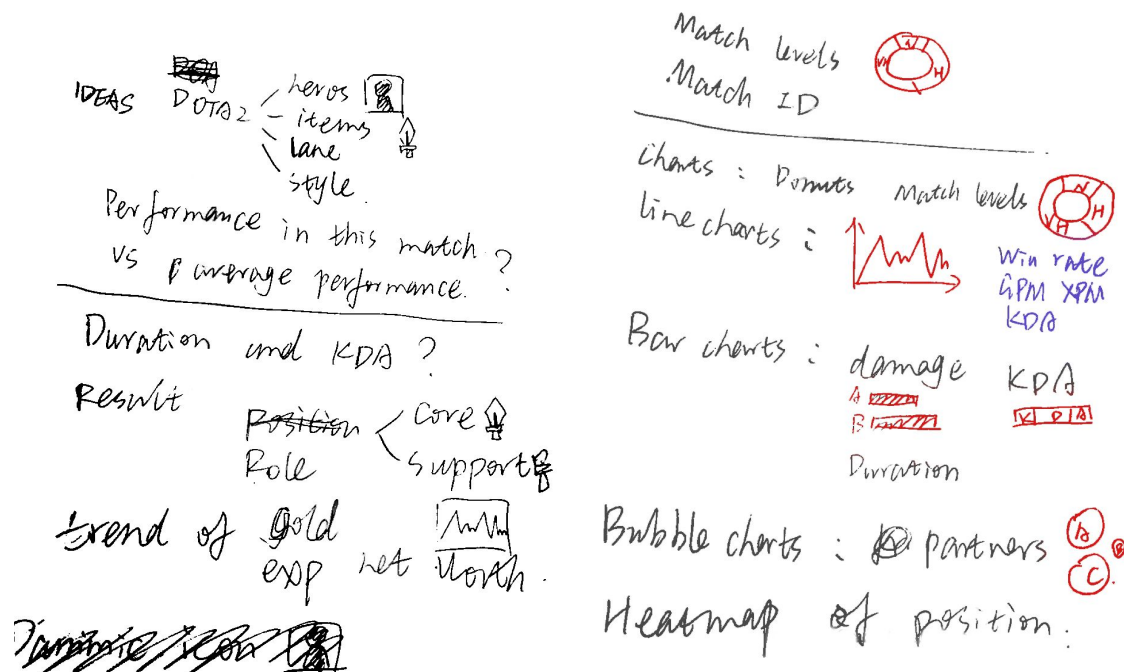 IDEAS DOTA2
heros
items
lane
style
Performance in this match
vs average performance. ?
Duration and KDA ?
Result
Position
Role
core
support
trend of gold
exp net worth.
icon
Match levels
N
H
V
Match ID
Charts : Donuts Match levels
N
H
V H
line charts :
Win rate
GPM XPM
KDA
Bar charts : damage KDA
A
B
K D A
Durration
Bubble charts : partners
A
B
C
Heatmap of position.